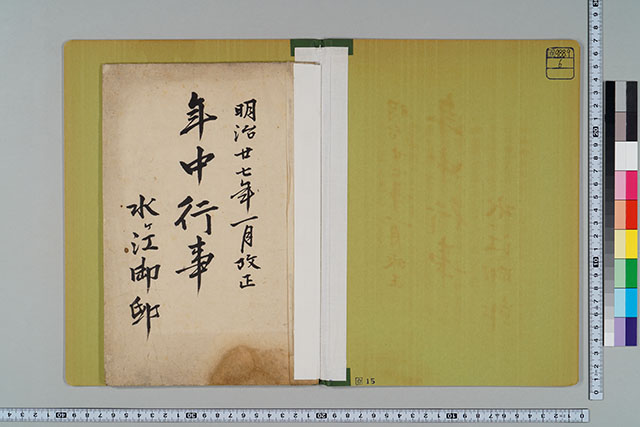 明治廿七年一月改正
年中行事
水ヶ江御邸
15